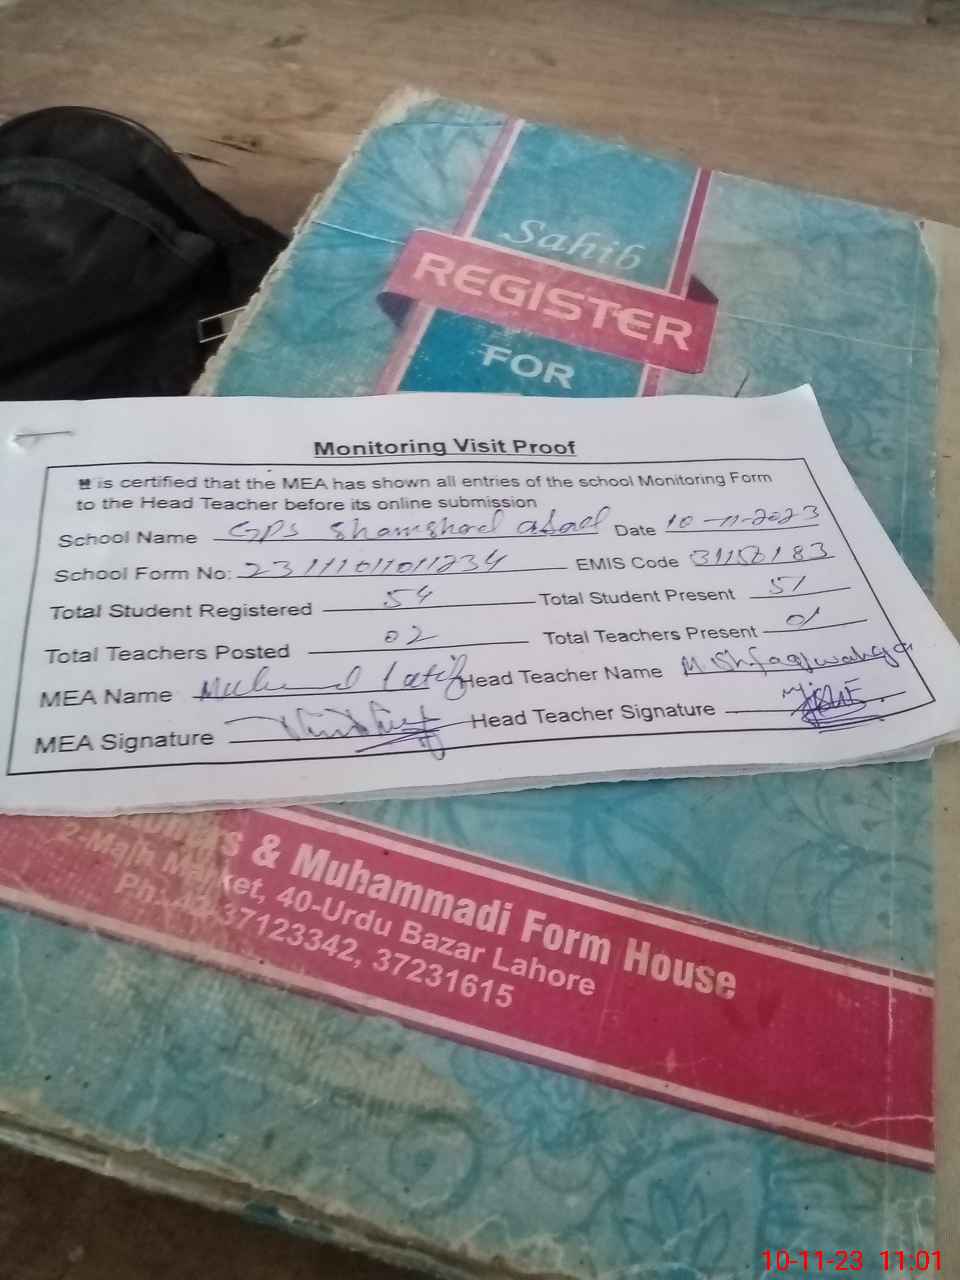 Sahib
REGISTER
FOR
Monitoring Visit Proof
It is certified that the MEA has shown all entries of the school Monitoring Form
to the Head Teacher before its online submission
School Name GPS Shamshad abad Date 10-11-2023
School Form No: 231111011011234 EMIS Code 31150183
Total Student Registered 54 Total Student Present 51
Total Teachers Posted 02 Total Teachers Present 01
MEA Name Latif Head Teacher Name
MEA Signature Head Teacher Signature
& Muhammadi Form House
2-Main Market, 40-Urdu Bazar Lahore
Ph: 42-37123342, 37231615
10-11-23 11:01